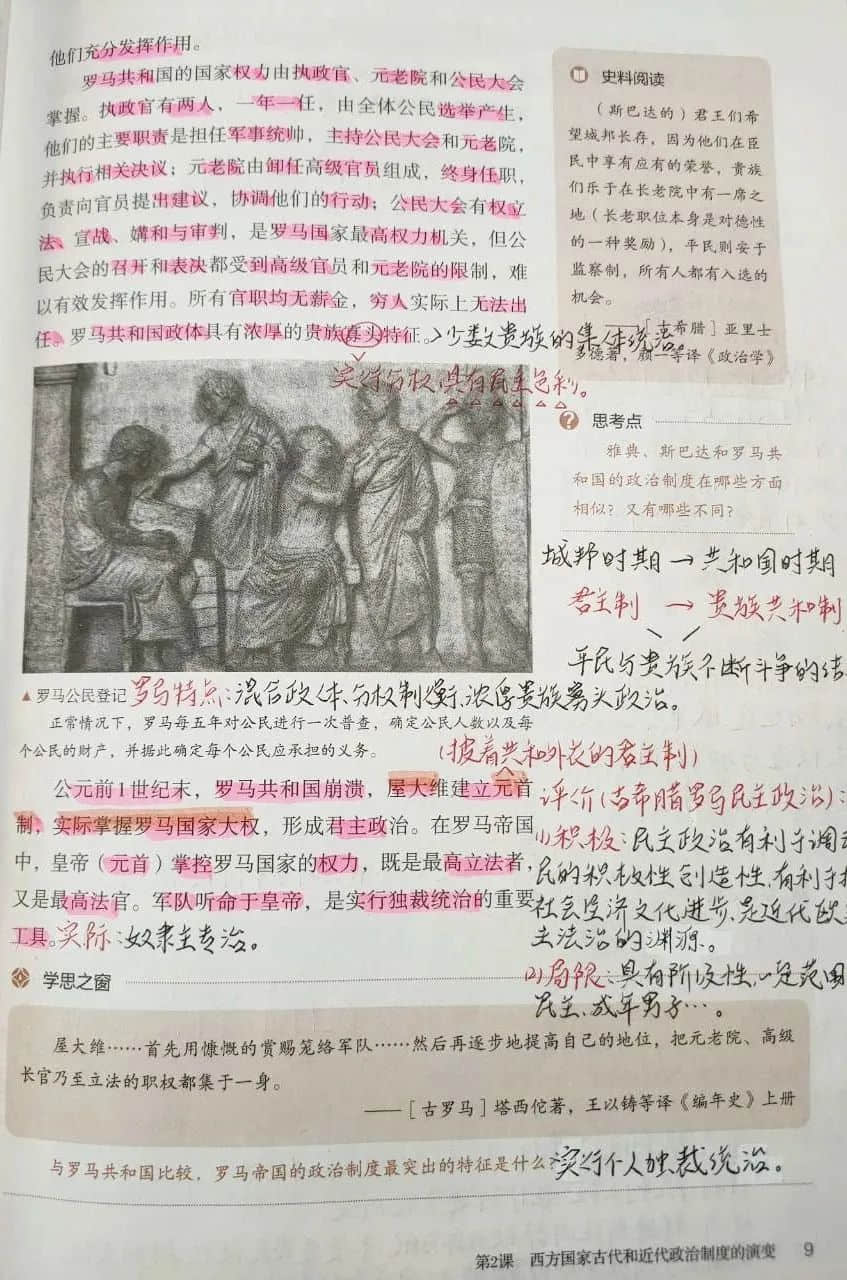 他们充分发挥作用。
罗马共和国的国家权力由执政官、元老院和公民大会
掌握。执政官有两人，一年一任，由全体公民选举产生，
他们的主要职责是担任军事统帅，主持公民大会和元老院，
并执行相关决议；元老院由卸任高级官员组成，终身任职，
负责向官员提出建议，协调他们的行动；公民大会有权立
法、宣战、媾和与审判，是罗马国家最高权力机关，但公
民大会的召开和表决都受到高级官员和元老院的限制，难
以有效发挥作用。所有官职均无薪金，穷人实际上无法出
任。罗马共和国政体具有浓厚的贵族寡头特征。
少数贵族的集体统治。
实行分权，具有民主色彩。
史料阅读
（斯巴达的）君王们希
望城邦长存，因为他们在臣
民中享有应有的荣誉，贵族
们乐于在长老院中有一席之
地（长老职位本身是对德性
的一种奖励），平民则安于
监察制，所有人都有入选的
机会。
——［古希腊］亚里士
多德著，颜一等译《政治学》
思考点
雅典、斯巴达和罗马共
和国的政治制度在哪些方面
相似？又有哪些不同？
城邦时期→共和国时期
君主制→贵族共和制
平民与贵族不断斗争的结
▲罗马公民登记
罗马特点：混合政体、分权制衡、浓厚贵族寡头政治。
正常情况下，罗马每五年对公民进行一次普查，确定公民人数以及每
个公民的财产，并据此确定每个公民应承担的义务。
（披着共和外衣的君主制）
公元前1世纪末，罗马共和国崩溃，屋大维建立元首
制，实际掌握罗马国家大权，形成君主政治。在罗马帝国
中，皇帝（元首）掌控罗马国家的权力，既是最高立法者，
又是最高法官。军队听命于皇帝，是实行独裁统治的重要
工具。实际：奴隶主专治。
评价（古希腊罗马民主政治）：
(1)积极：民主政治有利于调动
民的积极性创造性，有利于
社会经济文化进步，是近代欧
主法治的渊源。
(2)局限：具有阶级性，一定范围
民主、成年男子…。
学思之窗
屋大维……首先用慷慨的赏赐笼络军队……然后再逐步地提高自己的地位，把元老院、高级
长官乃至立法的职权都集于一身。
——［古罗马］塔西佗著，王以铸等译《编年史》上册
与罗马共和国比较，罗马帝国的政治制度最突出的特征是什么？
实行个人独裁统治。
第2课 西方国家古代和近代政治制度的演变 9